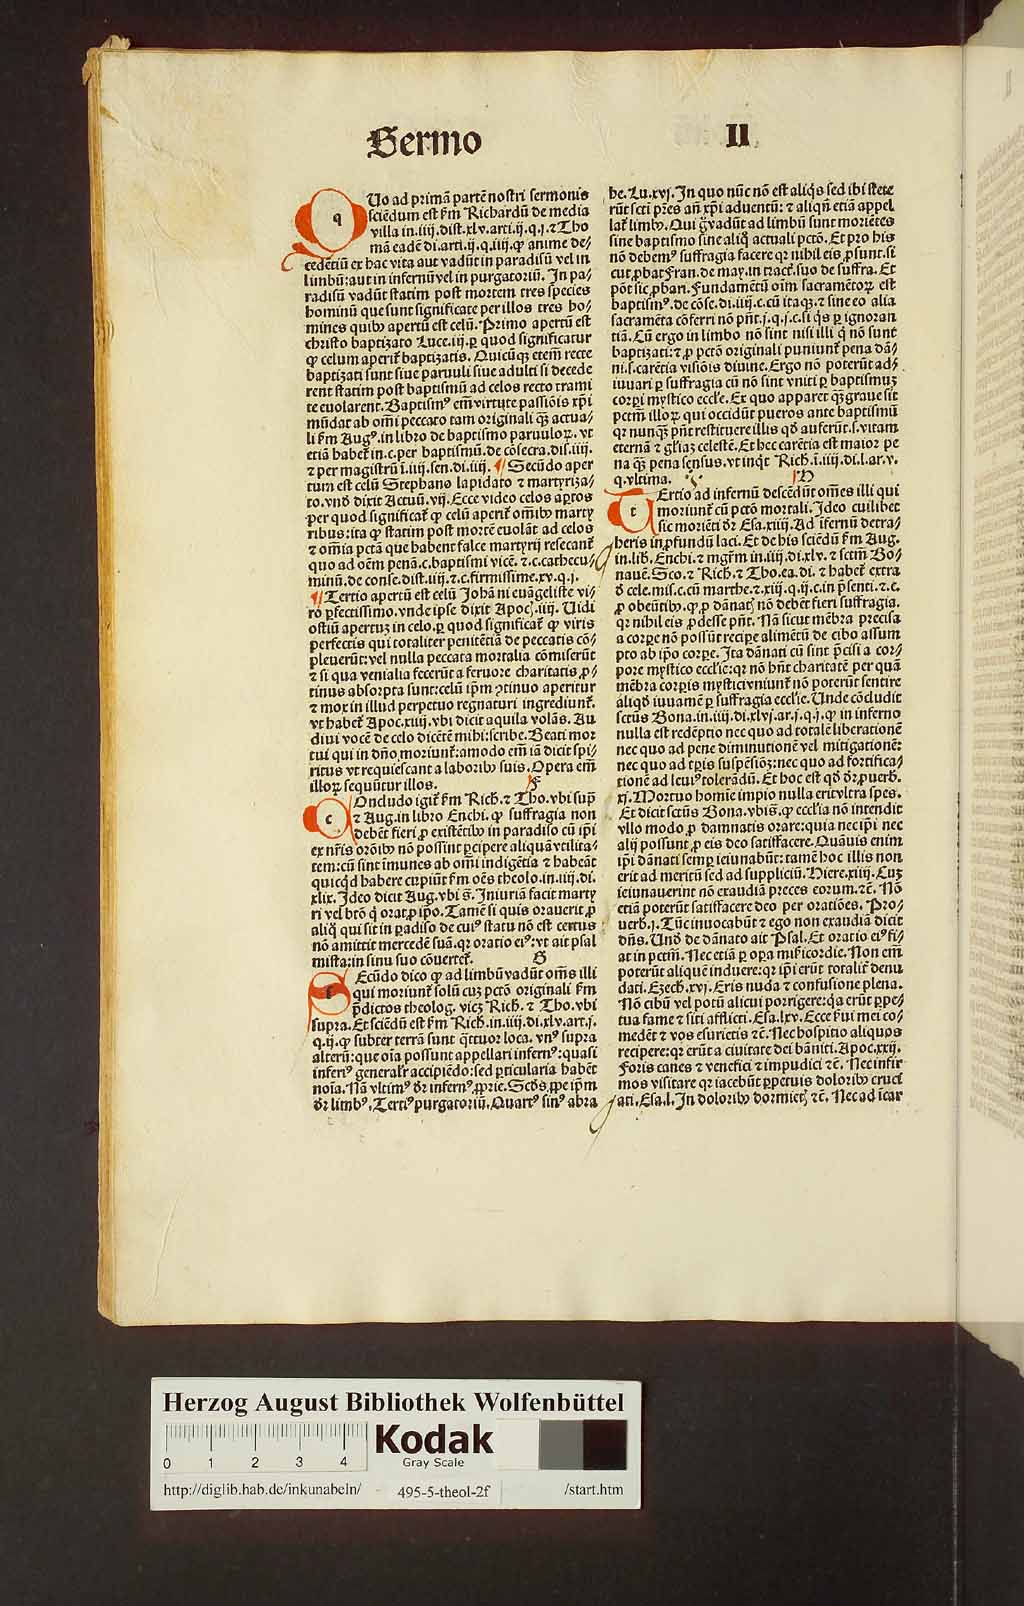 Sermo
II
QUo ad primā partē nostri sermonis
sciēdum est ẜm Richardū de media
villa in.iiij.dist.xlv.arti.ij.q.j.⁊ Tho
mā eadē di.arti.ij.q.iiij.ꝙ anime de⸗
cedētiū ex hac vita aut vadūt in paradisū vel in
limbū:aut in infernū vel in purgatoriū. In pa⸗
radisū vadūt statim post mortem tres species
hominū que sunt significate per illos tres ho⸗
mines quibꝰ apertū est celū. Primo apertū est
christo baptizato Luce.iij.ꝑ quod significatur
ꝙ celum aperit᷑ baptizatis. Quicūqꝫ etem̄ recte
baptizati sunt siue paruuli siue adulti si decede
rent statim post baptismū ad celos recto trami
te euolarent. Baptismꝰ em̄ virtute passiōis xp̄i
mūdat ab om̄i peccato tam originali qꝫ actua⸗
li ẜm Augꝰ.in libro de baptismo paruuloꝝ. vt
etiā habet᷑ in.c.per baptismū.de cōsecra.dis.iiij.
⁊ per magistrū ī.iiij.sen.di.iiij. ¶ Secūdo aper
tum est celū Stephano lapidato ⁊ martyriza⸗
to.vnð dixit Actuū.vij. Ecce video celos aꝑtos
per quod significat᷑ ꝙ celū aperit᷑ om̄ibꝰ marty
ribus:ita ꝙ statim post mortē euolāt ad celos
⁊ om̄ia pctā que habent falce martyrij resecant᷑
quo ad oēm penā.c.baptismi vicē.⁊.c.cathecu⸗
minū.de conse.dist.iiij.⁊.c.firmissime.xv.q.j.
¶ Tertio apertū est celū Johāni euāgeliste vi⸗
ro ꝑfectissimo.vnde ipse dixit Apoc̄.iiij. Uidi
ostiū apertuꝫ in celo.ꝑ quod significat᷑ ꝙ viris
perfectis qui totaliter penitētiā de peccatis cō⸗
pleuerūt:vel nulla peccata mortalia cōmiserūt
⁊ si qua venialia fecerūt a feruore charitatis ꝓ⸗
tinus absorpta sunt:celū ip̄m ꝯtinuo aperitur
⁊ mox in illud perpetuo regnaturi ingrediunt᷑.
vt habet᷑ Apoc.xiiij.vbi dicit aquila volās. Au
diui vocē de celo dicētē mihi:scribe. Beati mor
tui qui in dn̄o moriunt᷑:amodo em̄ iā dicit spi⸗
ritus vt requiescant a laboribꝰ suis. Opera em̄
illoꝝ sequūtur illos. F
COncludo igit᷑ ẜm Rich.⁊ Tho.vbi sup̄
⁊ Aug.in libro Enchi.ꝙ suffragia non
debēt fieri ꝓ existētibꝰ in paradiso cū ip̄i
ex nr̄is orōibꝰ nō possint ꝑcipere aliquā vtilita⸗
tem:cū sint īmunes ab om̄i indigētia ⁊ habeāt
quicqd̄ habere cupiūt ẜm oēs theolo.in.iiij.di.
xlix. Ideo dicit Aug.vbi s̄. Iniuriā facit marty
ri vel btō q̇ orat ꝓ ip̄o. Tamē si quis orauerit ꝓ
aliq̇ qui sit in ꝑadiso de cuiꝰ statu nō est certus
nō amittit mercedē suā.qꝛ oratio eiꝰ:vt ait psal
mista:in sinu suo cōuertet᷑. G
SEcūdo dico ꝙ ad limbū vadūt om̄s illi
qui moriunt᷑ solū cuꝫ pctō originali ẜm
p̄dictos theolog. vicꝫ Rich.⁊ Tho.vbi
supra. Et sciēdū est ẜm Rich.in.iiij.di.xlv.art.j.
q.ij.ꝙ subter terrā sunt q̇ttuor loca. vnꝰ supra
alterū:que oīa possunt appellari infernꝰ:quasi
inferiꝰ generalr̄ accipiēdo:sed ꝑticularia habēt
noīa. Nā vltimꝰ dr̄ infernꝰ ꝓprie. Scd̄s ꝓpe ip̄m
dr̄ limbꝰ. Tertiꝰ purgatoriū. Quartꝰ sinꝰ abra
he. Lu.xvj. In quo nūc nō est aliq̇s sed ibi stete
rūt scti pr̄es an̄ xp̄i aduentū:⁊ aliqn̄ etiā appel
lat᷑ limbꝰ. Qui g̊ vadūt ad limbū sunt moriētes
sine baptismo sine aliq̊ actuali pctō. Et pro his
nō debemꝰ suffragia facere qꝛ nihil eis ꝓsunt.si
cut ꝓbat Fran.de may.in tract.suo de suffra. Et
pōt sic ꝓbari. Fundamētū oīm sacramētoꝝ est
baptismꝰ.de cōse.di.iiij.c.cū itaqꝫ.⁊ sine eo alia
sacramēta cōferri nō pn̄t.j.q.j.c.si q̇s ꝑ ignoran
tiā. Cū ergo in limbo nō sint nisi illi q̇ nō sunt
baptizati:⁊ ꝓ pctō originali puniunt᷑ pena dā⸗
ni.s.carētia visiōis diuine. Ergo nō poterūt ad⸗
iuuari ꝑ suffragia cū nō sint vniti ꝑ baptismuꝫ
corꝑi mystico eccl̄ie. Ex quo apparet qꝫ graue sit
pctm̄ illoꝝ qui occidūt pueros ante baptismū
qꝛ nunqꝫ pn̄t restituere illis qd̄ auferūt.s.vitam
eternā ⁊ gl̄iaꝫ celestē. Et hec carētia est maior pe
na qꝫ pena sensus.vt inq̇t Rich.ī.iiij.di.l.ar.v.
q.vltima. H
TErtio ad infernū descēdūt om̄es illi qui
moriunt᷑ cū pctō mortali. Ideo cuilibet
sic moriēti dr̄ Esa.xiiij. Ad īfernū detra⸗
heris in ꝓfundū laci. Et de his sciēdū ẜm Aug.
in.lib. Enchi.⁊ mgr̄m in.iiij.di.xlv.⁊ sctm̄ Bo⸗
nauē. Sco.⁊ Rich.⁊ Tho.ea.di.⁊ habet᷑ extra
ð cele.mis.c.cū marthe.⁊.xiij.q.ij.c.in p̄senti.⁊.c.
ꝓ obeūtibꝰ.ꝙ ꝓ dānatꝭ nō debēt fieri suffragia.
qꝛ nihil eis ꝓdesse pn̄t. Nā sicut mēbra precisa
a corꝑe nō possūt recipe alimētū de cibo assum
pto ab ip̄o corꝑe. Ita dānati cū sint p̄cisi a cor⸗
pore mystico eccl̄ie:qꝛ nō hn̄t charitatē per quā
mēbra corꝑis mystici vniunt᷑ nō poterūt sentire
aliqd̄ iuuamē ꝑ suffragia eccl̄ie. Unde cōcludit
sctūs Bona.in.iiij.di.xlvj.ar.j.q.j.ꝙ in inferno
nulla est redēptio nec quo ad totalē liberationē
nec quo ad pene diminutionē vel mitigationē:
nec quo ad tꝑis suspēsiōꝫ:nec quo ad fortifica⸗
tionē ad leuiꝰ tolerādū. Et hoc est qd̄ dr̄ ꝓuerb.
xj. Mortuo homīe impio nulla erit vltra spes.
Et dicit sctūs Bona.vbi s̄.ꝙ eccl̄ia nō intendit
vllo modo ꝓ damnatis orare:quia nec ip̄i nec
alij possunt ꝓ eis deo satisfacere. Quāuis enim
ip̄i dānati semꝑ ieiunabūt:tamē hoc illis non
erit ad meritū sed ad suppliciū. Hiere.xiiij. Cuꝫ
ieiunauerint nō exaudiā preces eorum.⁊c̄. Nō
etiā poterūt satisfacere deo per oratiōes. Pro⸗
uerb.j. Tūc inuocabūt ⁊ ego non exaudiā dicit
dn̄s. Unð de dānato ait Psal. Et oratio eiꝰ fi⸗
at in pctm̄. Nec etiā ꝑ oꝑa mīsericordie. Non em̄
poterūt aliquē induere:qꝛ ip̄i erūt totalit᷑ denu
dati. Ezech.xvj. Eris nuda ⁊ confusione plena.
Nō cibū vel potū alicui porrigere:qa erūt ꝑpe⸗
tua fame ⁊ siti afflicti. Esa.lxv. Ecce ẜui mei co⸗
medēt ⁊ vos esurietis ⁊c̄. Nec hospitio aliquos
recipere:qꝛ erūt a ciuitate dei bāniti. Apoc.xxij.
Foris canes ⁊ venefici ⁊ impudici ⁊c̄. Nec infir
mos visitare qꝛ iacebūt ꝑpetuis doloribꝰ cruci
ati. Esa.l. In doloribꝰ dormietꝭ ⁊c̄. Nec ad īcar
Herzog August Bibliothek Wolfenbüttel
0 1 2 3 4
Kodak
Gray Scale
http://diglib.hab.de/inkunabeln/ - 495-5-theol-2f /start.htm